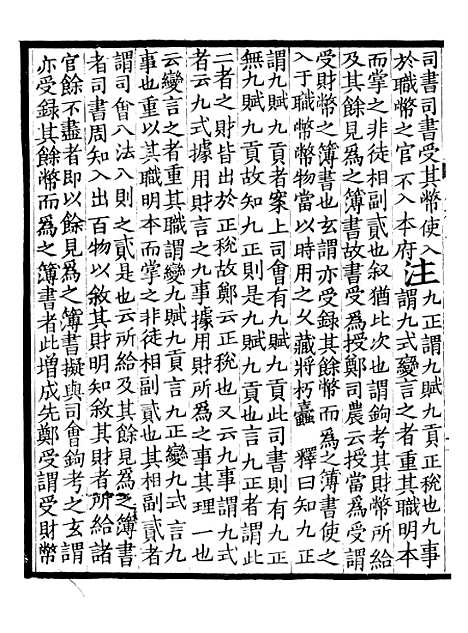 司書司書受其幣使入
於職幣之官不入本府
注
九正謂九賦九貢正稅也九事
謂九式變言之者重其職明本
而掌之非徒相副貳也叙猶比次也謂鉤考其財幣所給
及其餘見爲之簿書故書受爲授鄭司農云授當爲受謂
受財幣之簿書也玄謂亦受録其餘幣而爲之簿書使之
入于職幣幣物當以時用之久藏將朽蠹 釋曰九正
謂九賦九貢者案上司會有九賦九貢此司書則有九正
無九賦九貢故知九正則是九賦九貢也言九正者謂此
二者之財皆出於正稅故鄭云正稅也又云九事謂九式
者云九式據用財言之九事據用財所爲之事其理一也
云變言之者重其職謂變九賦九貢言九正變九式言九
事也重以其職明本而掌之非徒相副貳也其相副貳者
謂司會八法八則之貳是也云所給及其餘見爲之簿書
者司書周知入出百物以敘其財明知敘其財者所給諸
官餘不盡者即以餘見爲之簿書擬與司會鉤考之玄謂
亦受録其餘幣而爲之簿書者此增成先鄭受謂受財幣